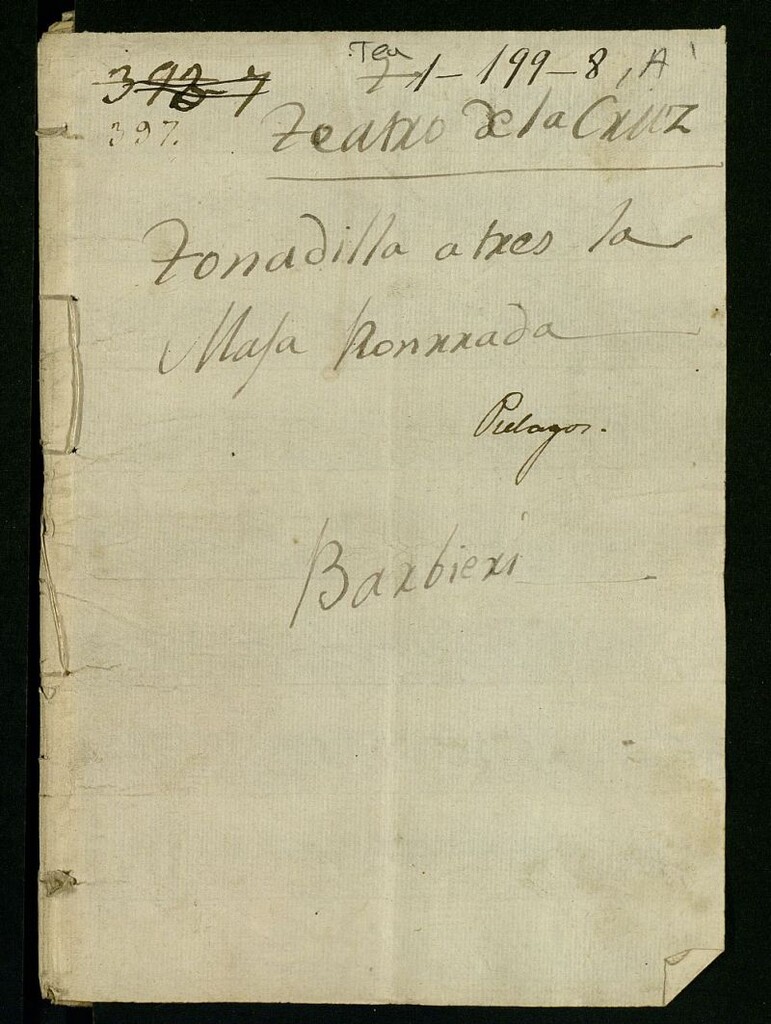 396-7
Tea 1-199-8, A
397.
Teatro de la Cruz
Tonadilla a tres la
Maja Honrrada
Pielagos.
Barbieri